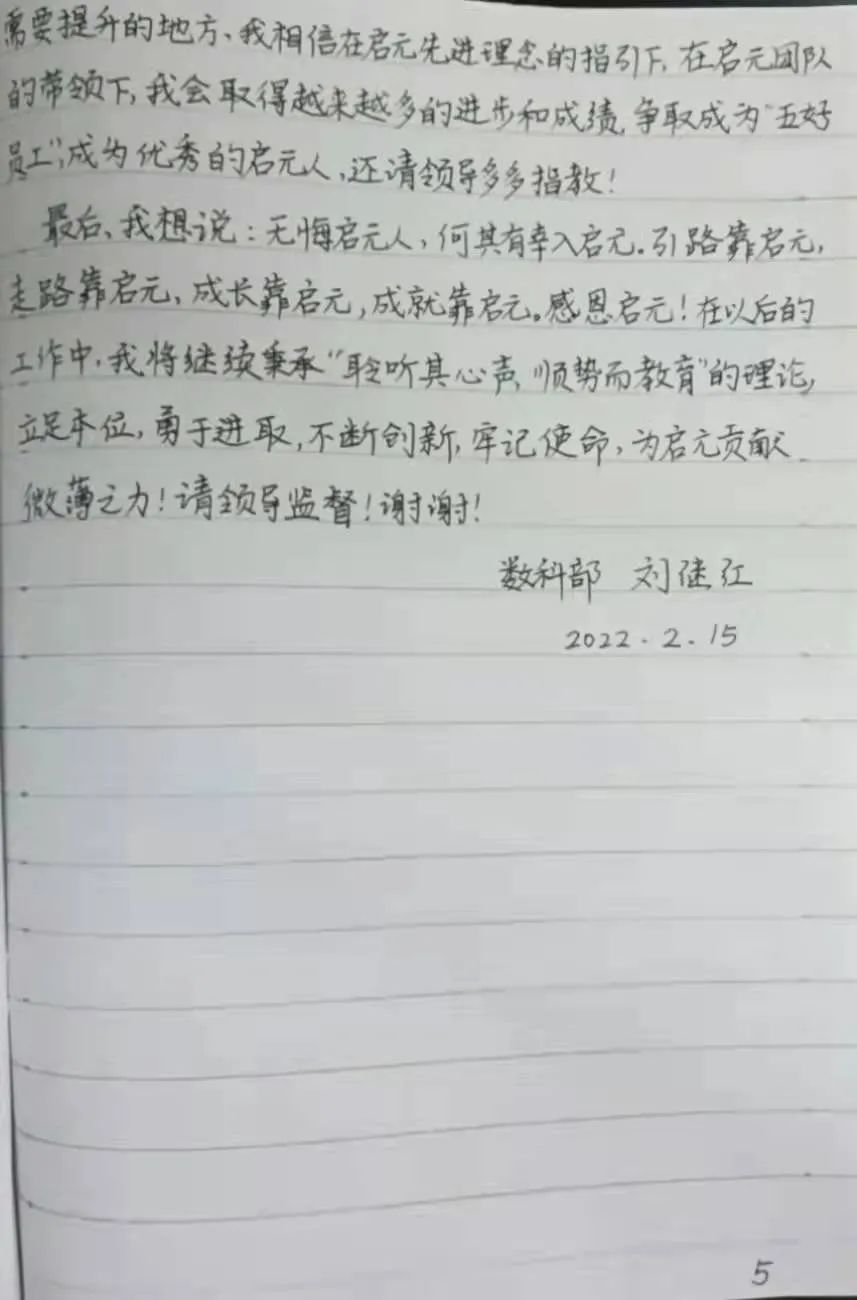 需要提升的地方、我相信在启元先进理念的指引下,在启元团队
的带领下,我会取得越来越多的进步和成绩,争取成为“五好
员工”,成为优秀的启元人,还请领导多多指教!
最后、我想说:无悔启元人,何其有幸入启元。引路靠启元,
走路靠启元,成长靠启元,成就靠启元。感恩启元!在以后的
工作中,我将继续秉承“聆听其心声,顺势而教育”的理论,
立足本位,勇于进取,不断创新,牢记使命,为启元贡献
微薄之力!请领导监督!谢谢!
数科部 刘继红
2022.2.15
5